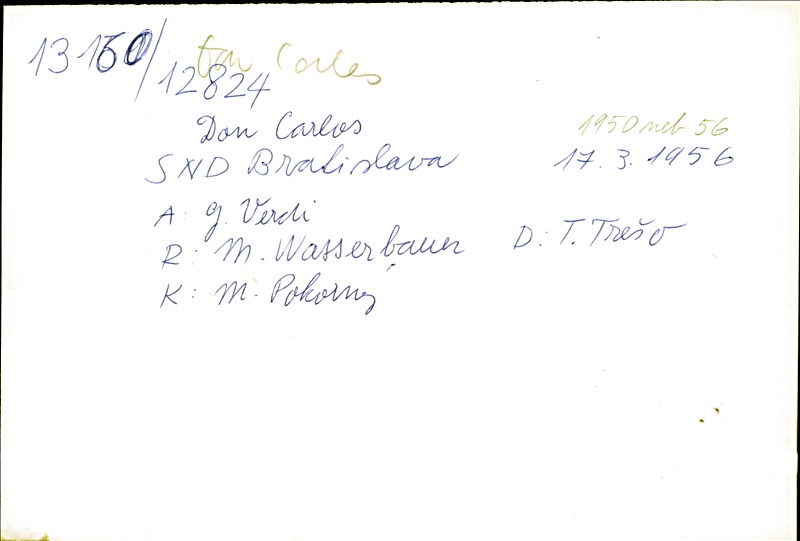 13160/ Don Carlos
12824
Don Carlos 1950 neb 56
SND Bratislava 17. 3. 1956
A: G. Verdi
R: M. Wasserbauer D: T. Trešo
K: M. Pokorny